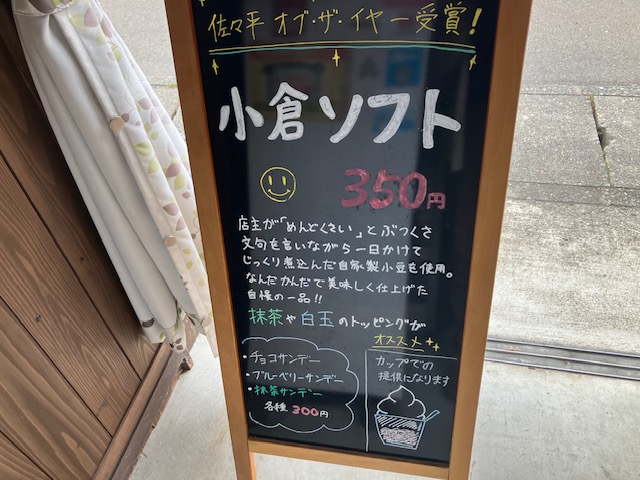 佐々平 オブ・ザ・イヤー受賞!
小倉ソフト
350円
店主が「めんどくさい」とぶつくさ
文句を言いながら一日かけて
じっくり煮込んだ自家製小豆を使用。
なんだかんだで美味しく仕上げた
自慢の一品!!
抹茶や白玉のトッピングが
オススメ
・チョコサンデー
・ブルーベリーサンデー
・抹茶サンデー
各種 300円
カップでの
提供になります